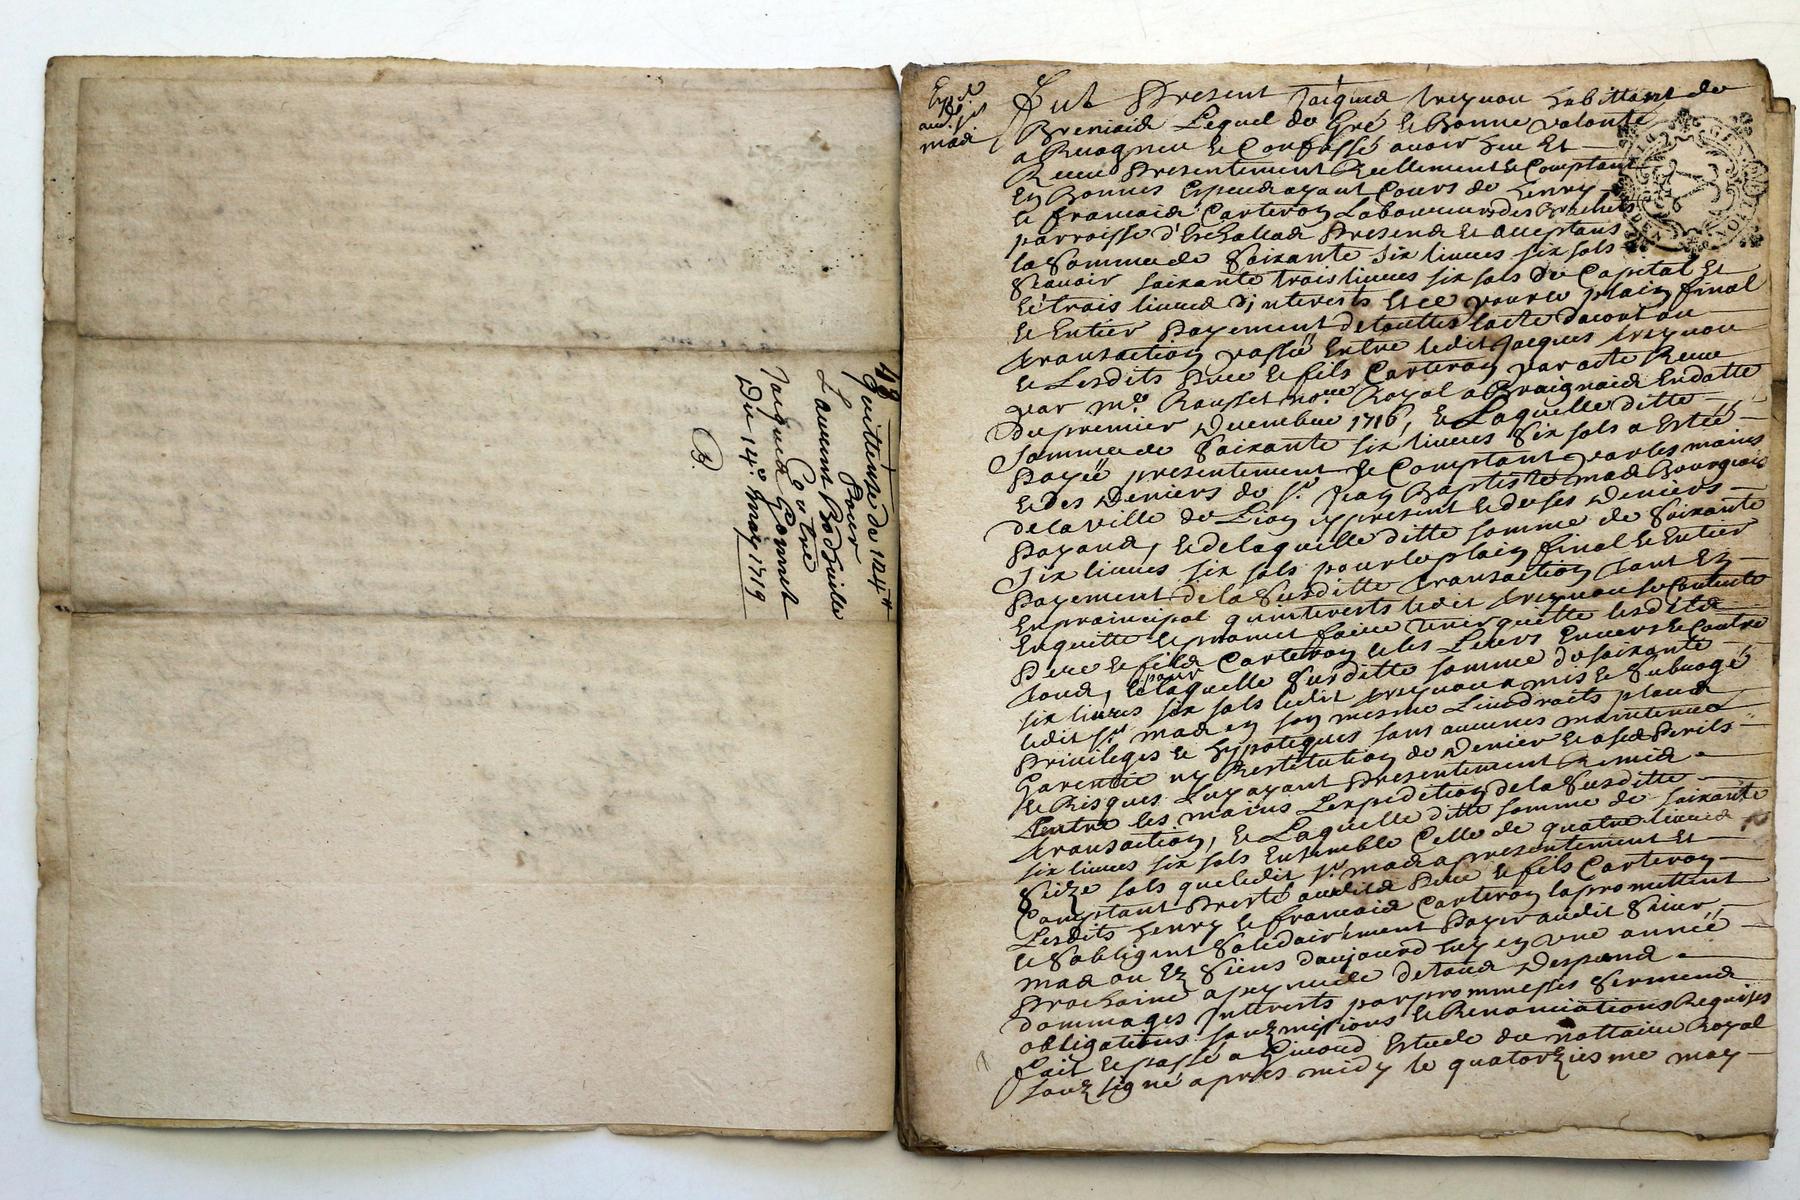 48
Quittense de 124tt
Pour
Laurent Bodsuille
Contre
Jaques Gonnet
Du 14e. may 1719
B.
Exp.é
aud. sr
mas
Fut Present Jacques Treynou habittant de
Breniais Lequel de Gré et Bonne volonté
a Recogneu et Confessé auoir heu Et
Receu Presentement Reellement et Comptant
En Bonnes Especes ayant Cours de henry
et francois Carteron Laboureurs des
parroisse d'Eschallas Presens et acceptans
la Somme de Soixante Six liures six sols
Scauoir soixante trois liures six sols de Capital Et
Et trois liures d'interests Et ce pour le plain final
et Entier Payement de touttes
transaction passée Entre ledit Jacques Treynou
et Lesdits Pere et fils Carteron par acte Receu
par me. Rousset nore Royal a Braignais En datte
du premier Decembre 1716, et Laquelle ditte
Somme de Soixante six liures Six sols a Estéé
Payéé presentement et Comptant par les mains
et des Deniers de sr. Jean Baptiste mas Bourgeois
de la ville de Lion icy present et de ses Deniers
Payans, et de laquelle ditte somme de Soixante
Six liures six sols pour le plain final et Entier
Payement de la Susditte transaction tant En
En praincipal qu'interests ledit Treynou se Contente
En quitte et promet faire tenir quitte lesdits
Pere et fils Carteron et les Leurs Enuers et Contre
tous, et pour laquelle Susditte somme de soixante
six liures six sols ledit Treynou a mis et Subrogé
ledit sr. mas en son mesme Lieu droits place
Priuileges et hypoteques sans aucunes maintenue
Garentie ny Restitution de Denier Et a ses Perils
et Risques Luy ayant Presentement Remis
Entre les mains L'expedition de la Susditte
transaction, et Laquelle ditte somme de soixante
six liures six sols Ensemble Celle de quatre liures
Seize sols que ledit sr. mas a presentement Et
Comptant Presté ausdits Pere et fils Carteron
Lesdits henry et francois Carteron la promettent
et S'obligent Solidairement Payer audit Sieur
mas ou Ez Siens d'aujourd huy en vne année
Prochaine a peyne de tous Despens
dommages Interests par prommesses Sermens
obligations souzmissions et Renonciations Requises
fait et passé a Giuord Estude du nottaire Royal
souz signé apres midy le quatorziesme may